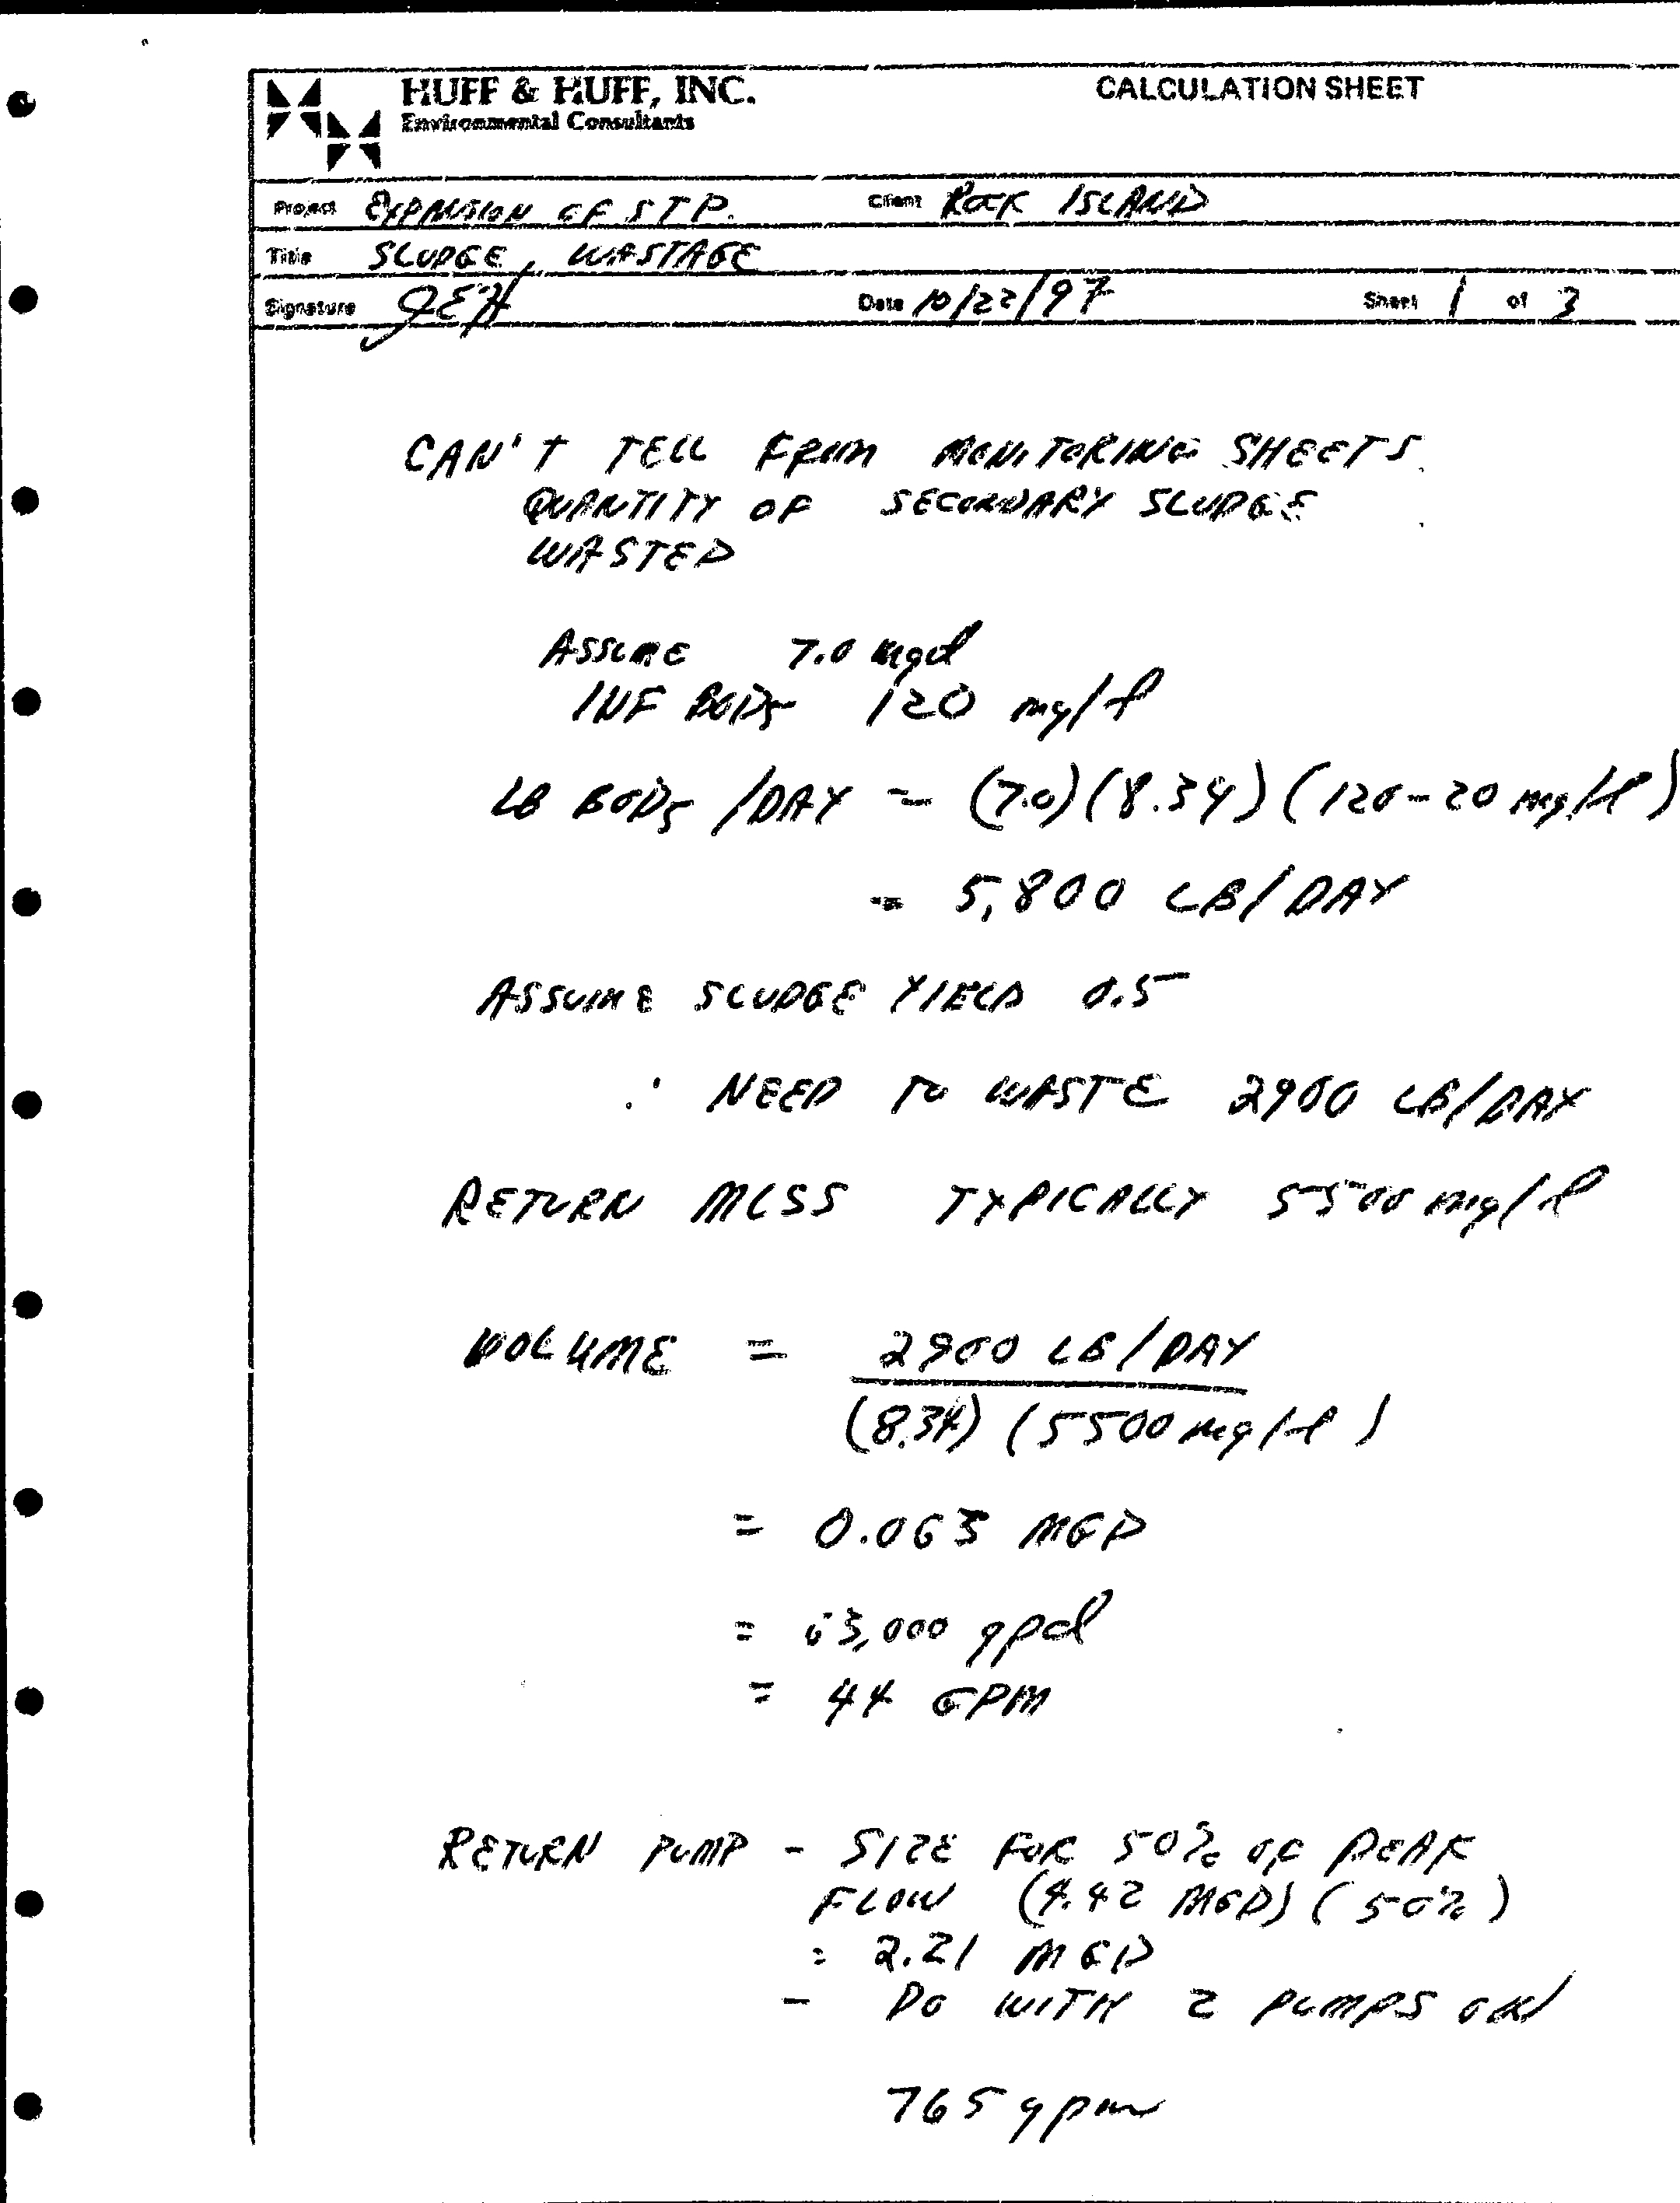 HUFF & HUFF, INC.
Environmental Consultants
CALCULATION SHEET
Project EXPANSION OF STP. Client ROCK ISLAND
Title SLUDGE WASTAGE
Signature JEH Date 10/22/97 Sheet 1 of 3
CAN'T TELL FROM MONITORING SHEETS
QUANTITY OF SECONDARY SLUDGE
WASTED
ASSUME 7.0 mgd
INF BOD5 120 mg/l
LB BOD5 /DAY = (7.0)(8.34)(120-20 mg/l)
= 5,800 LB/DAY
ASSUME SLUDGE YIELD 0.5
NEED TO WASTE 2900 LB/DAY
RETURN MLSS TYPICALLY 5500 mg/l
VOLUME = 2900 LB/DAY
(8.34) (5500 mg/l)
= 0.063 MGD
= 63,000 gpd
= 44 GPM
RETURN PUMP - SIZE FOR 50% OF PEAK
FLOW (4.42 MGD) (50%)
= 2.21 MGD
- DO WITH 2 PUMPS ON
765 gpm